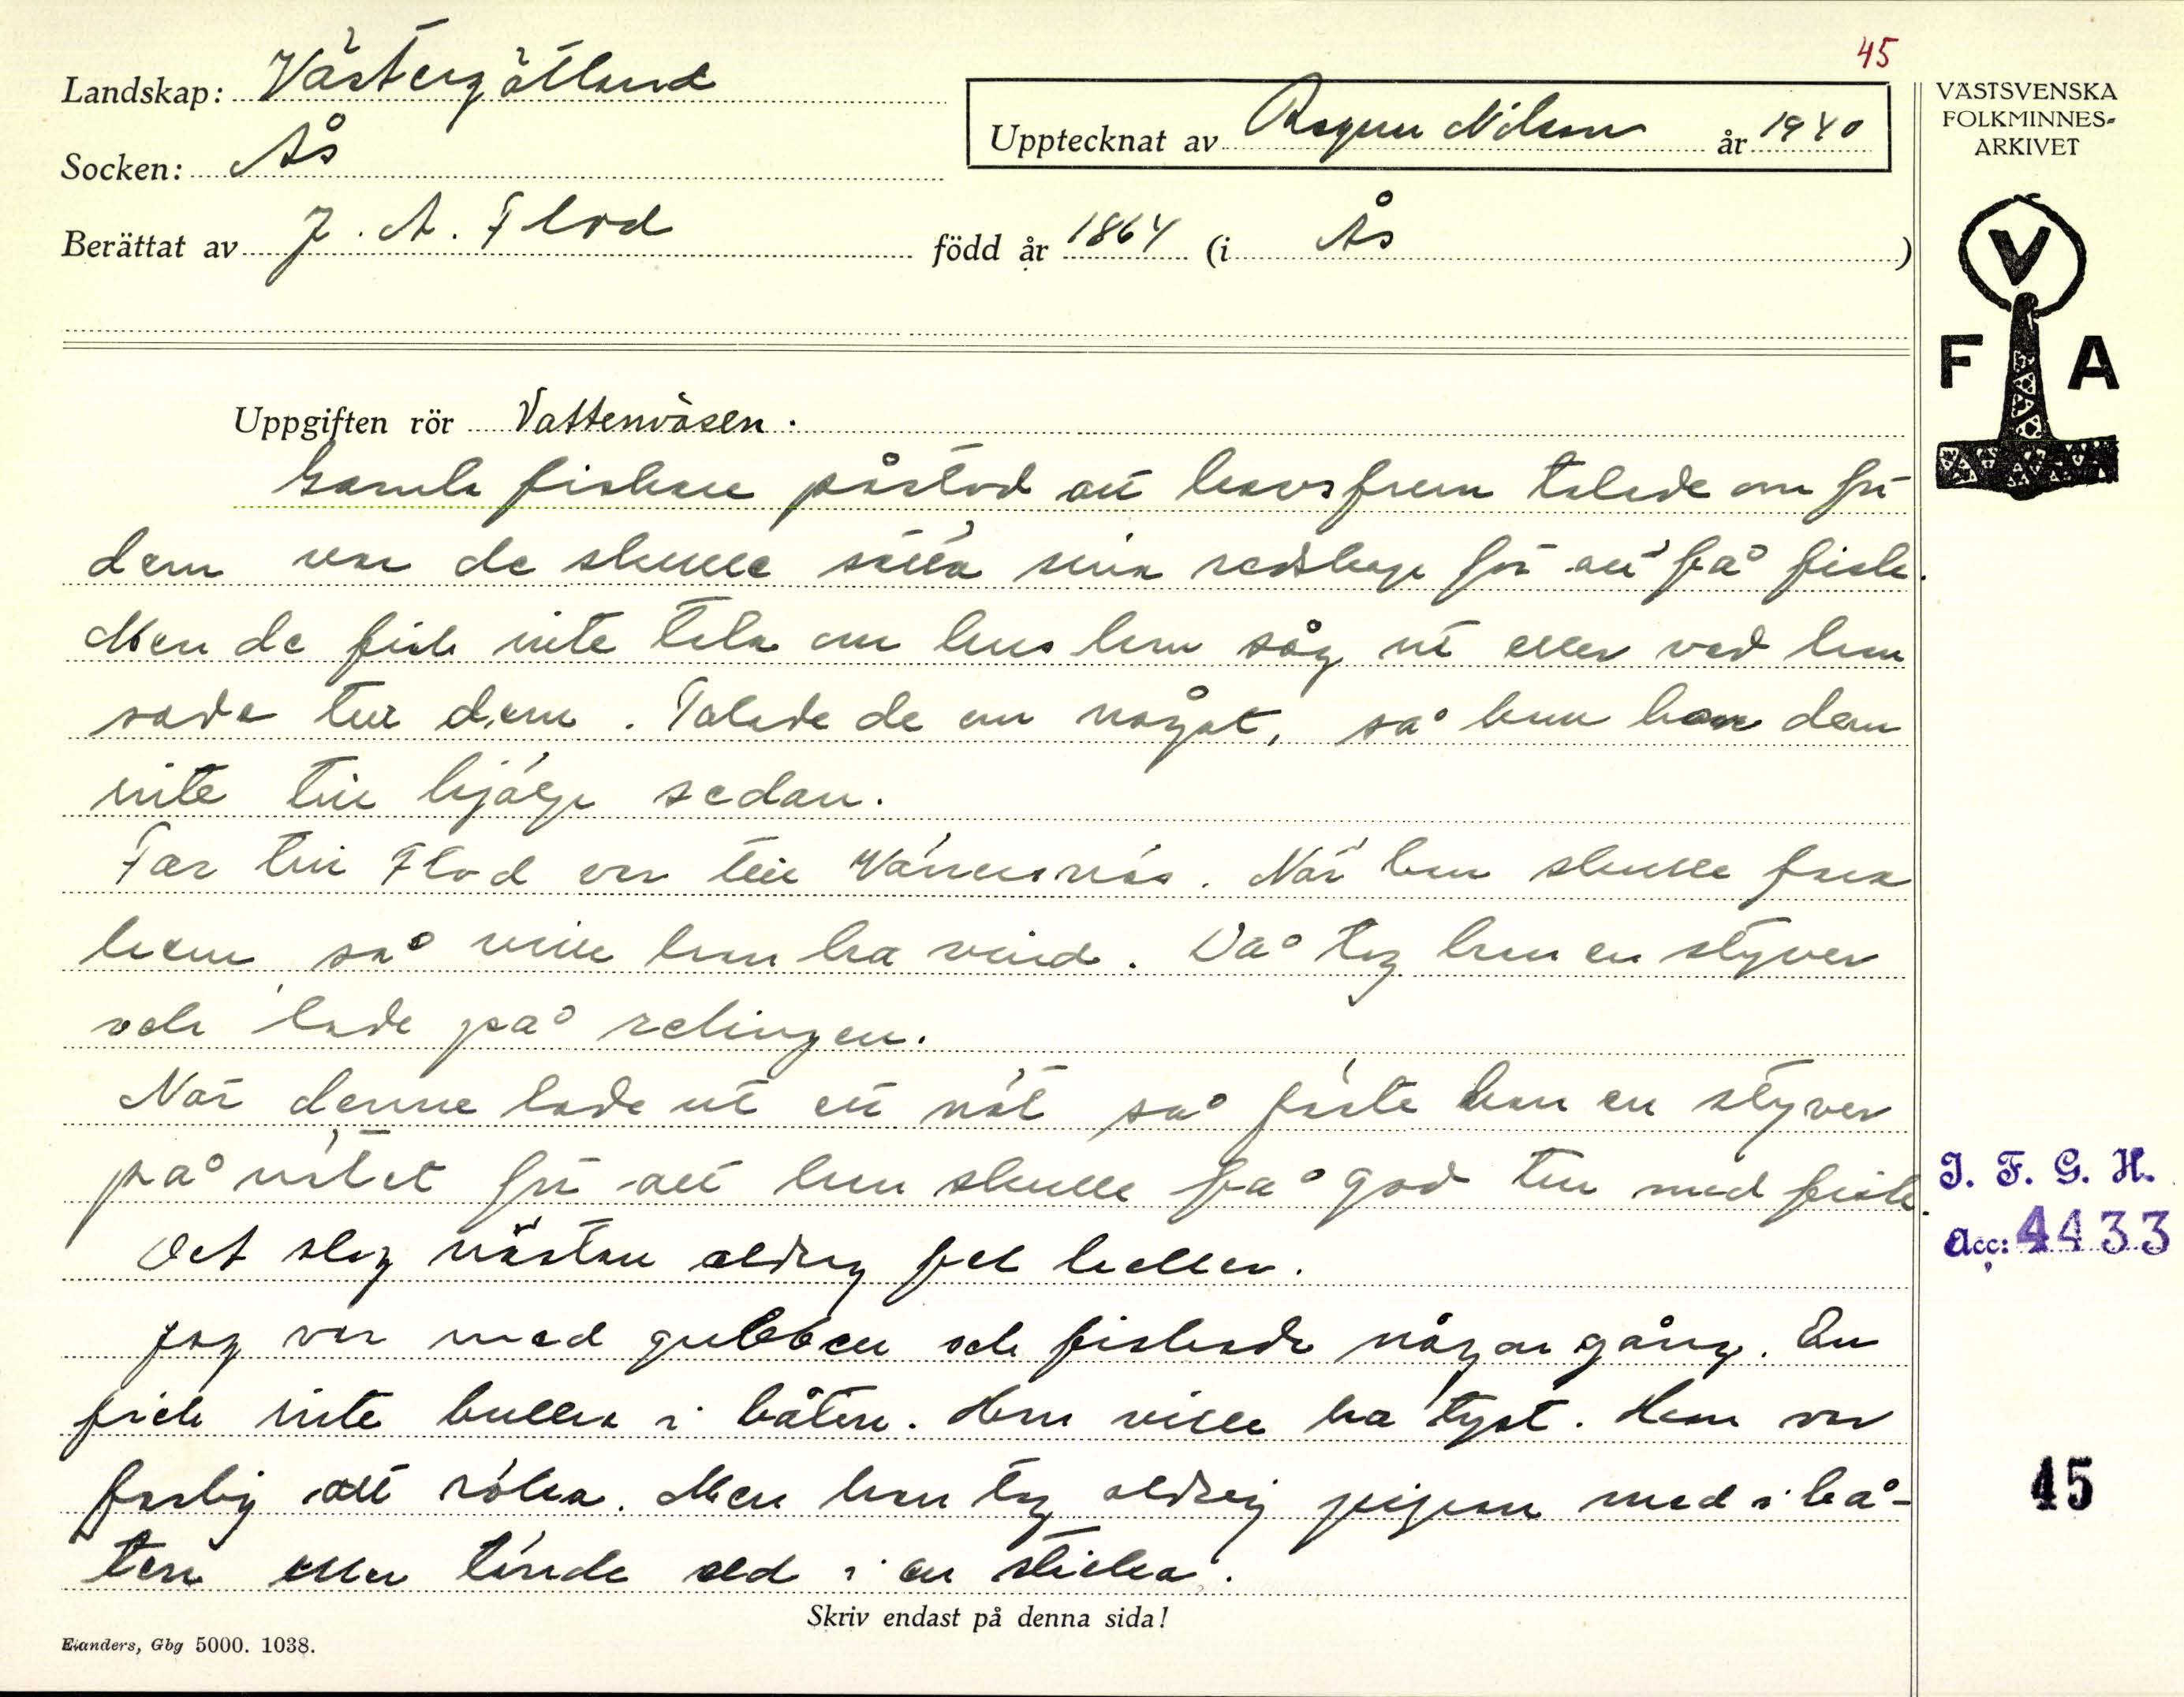 45
Landskap: Västergötland
Upptecknat av Ragnar Nilsson år 1940
VÄSTSVENSKA
FOLKMINNES-
ARKIVET
Socken: Ås
Berättat av J. A. Flod född år 1864 (i Ås )
V
F A
Uppgiften rör Vattenväsen.
Gamla fiskare påstod att havsfrun talade om för
dem var de skulle sätta sina redskap för att få fisk.
Men de fick inte tala om hur hon såg ut eller vad hon
sade till dem. Talade de om något, så kom hon dem
inte till hjälp sedan.
Far till Flod var till Wänersnäs. När han skulle fara
hem så ville han ha vind. Då tog han en styver
och lade på relingen.
När denne lade ut ett nät så fäste han en styver
på nätet för att han skulle få god tur med fisk.
Det slog nästan aldrig fel heller.
Jag var med gubben och fiskade någon gång. En
fick inte bullra i båten. Han ville ha tyst. Han var
farlig att röka. Men han tog aldrig pipan med i bå-
ten eller tände eld i en sticka.
J. F. G. H.
Acc: 4433
45
Skriv endast på denna sida!
Elanders, Gbg 5000. 1038.